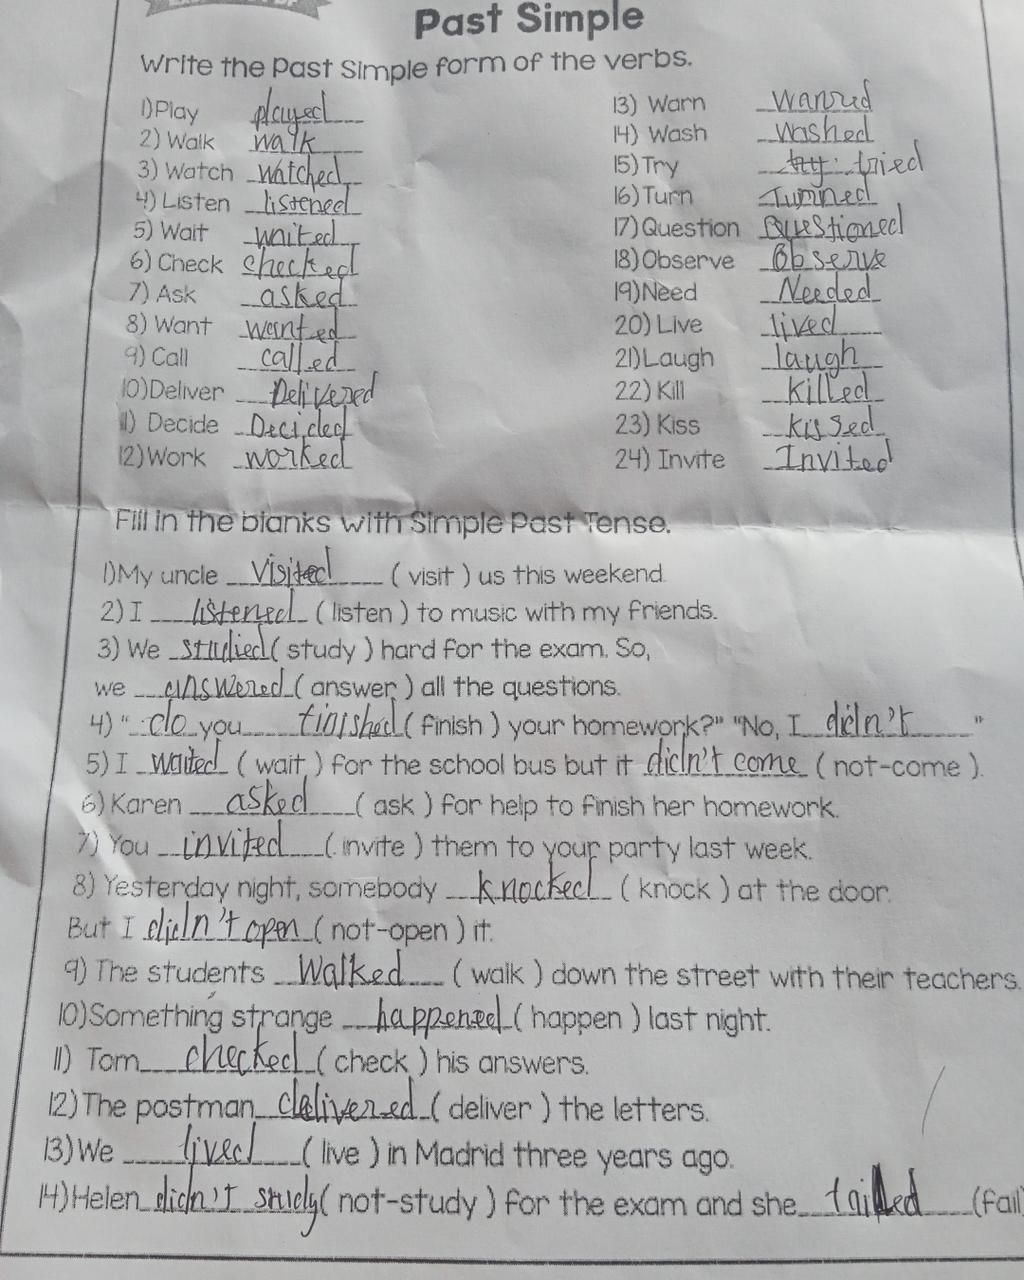 Past Simple
Write the Past Simple form of the verbs.
1)Play played
2) Walk walk
3) Watch watched
4) Listen listened
5) Wait waited
6) Check checked
7) Ask asked
8) Want wanted
9) Call called
10)Deliver Delivered
11) Decide Decided
12)Work worked
13) Warn
14) Wash washed
15) Try try tried
16)Turn
17)Question Questioned
18)Observe Observe
19)Need Needed
20) Live lived
21)Laugh laugh
22) Kill Killed
23) Kiss kissed
24) Invite Invited
Fill in the blanks with Simple Past Tense.
1)My uncle visited ( visit ) us this weekend.
2) I listened ( listen ) to music with my friends.
3) We studied ( study ) hard for the exam. So,
we answered ( answer ) all the questions.
4) " do you finished ( finish ) your homework?" "No, I didn't "
5) I waited ( wait ) for the school bus but it didn't come ( not-come ).
6) Karen asked ( ask ) for help to finish her homework.
7) You invited ( invite ) them to your party last week.
8) Yesterday night, somebody knocked ( knock ) at the door.
But I didn't open ( not-open ) it.
9) The students Walked ( walk ) down the street with their teachers.
10)Something strange happened ( happen ) last night.
11) Tom checked ( check ) his answers.
12)The postman delivered ( deliver ) the letters.
13)We lived ( live ) in Madrid three years ago.
14)Helen didn't study ( not-study ) for the exam and she failled (fail)